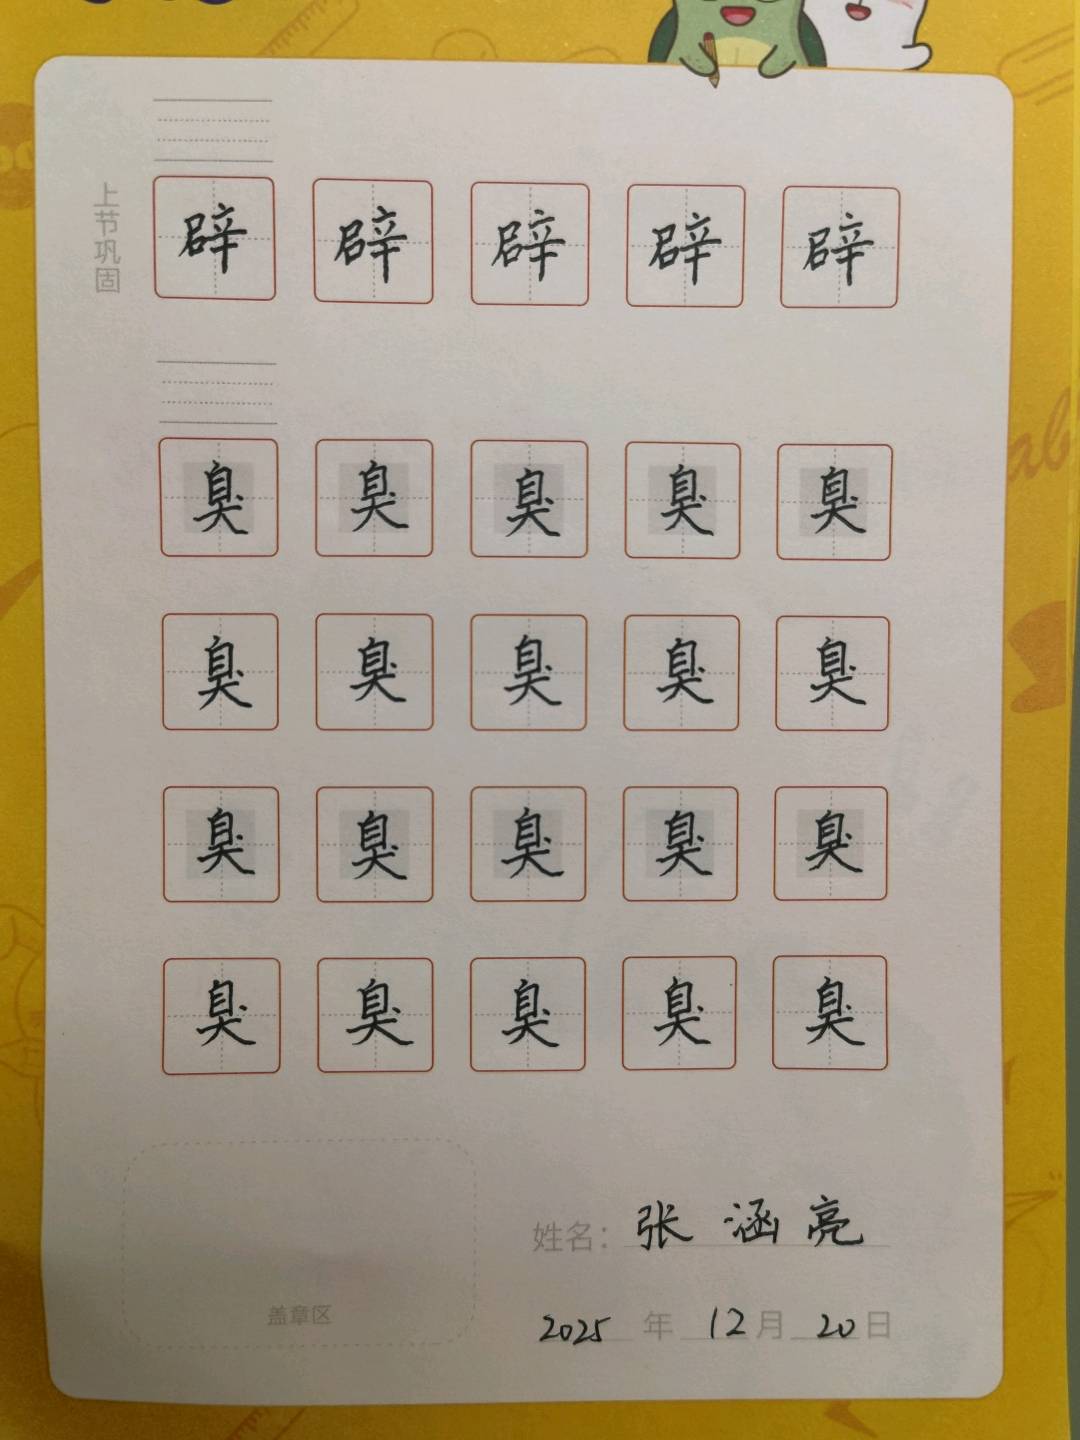 上节巩固
辟 辟 辟 辟 辟
臭 臭 臭 臭 臭
臭 臭 臭 臭 臭
臭 臭 臭 臭 臭
臭 臭 臭 臭 臭
姓名：张涵亮
盖章区
2025年12月20日